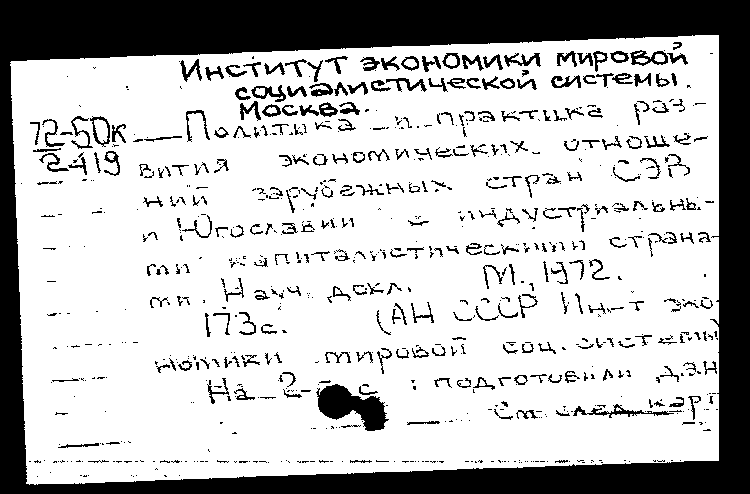 Институт экономики мировой
социалистической системы.
Москва.
72-50к Политика и практика раз-
2-419 вития экономических отноше-
ний зарубежных стран СЭВ
и Югославии с индустриальны-
ми капиталистическими страна-
ми. Науч. докл. М., 1972.
173с. (АН СССР Ин-т эко-
номики мировой соц. системы)
На 2- с : подготовили дан
См след карт